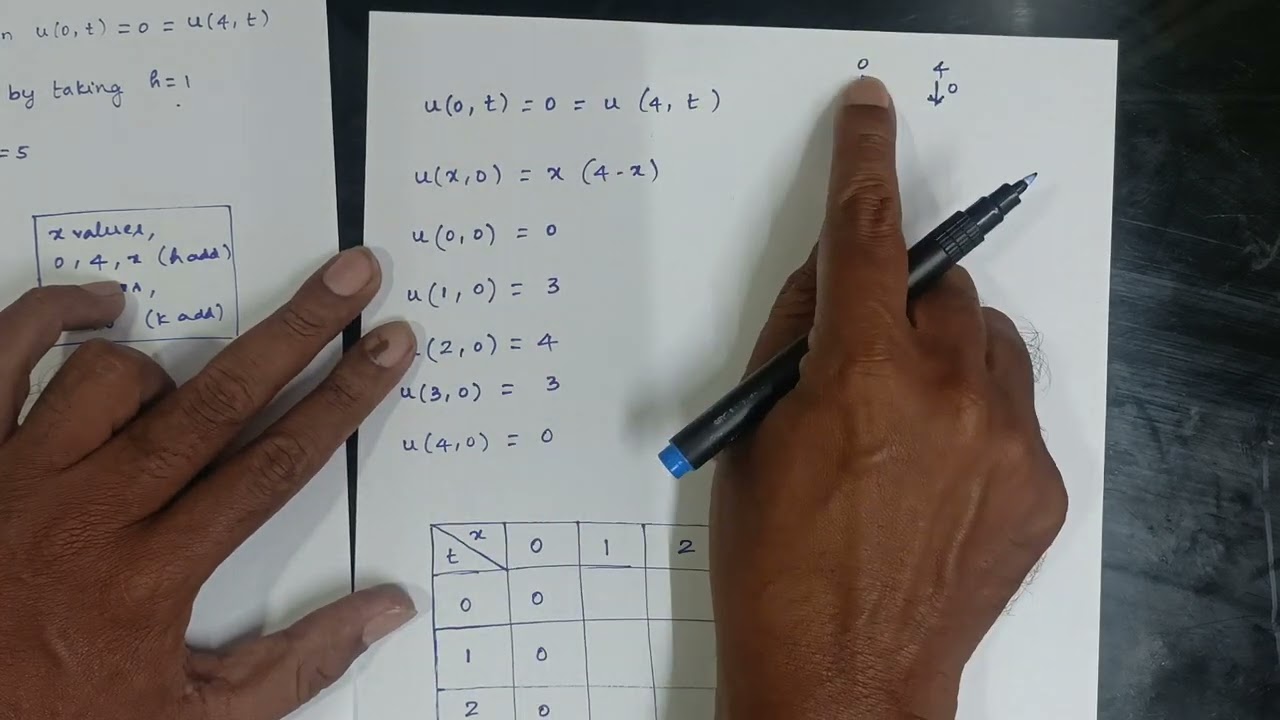 n u(0,t) = 0 = u(4,t)
by taking h=1
=5
x values,
0, 4, x (h add)
(k add)
0 4
↓0
u(0, t) = 0 = u (4, t)
u(x,0) = x (4-x)
u(0,0) = 0
u(1,0) = 3
(2,0) = 4
u(3,0) = 3
u(4,0) = 0
t x 0 1 2
0 0
1 0
2 0